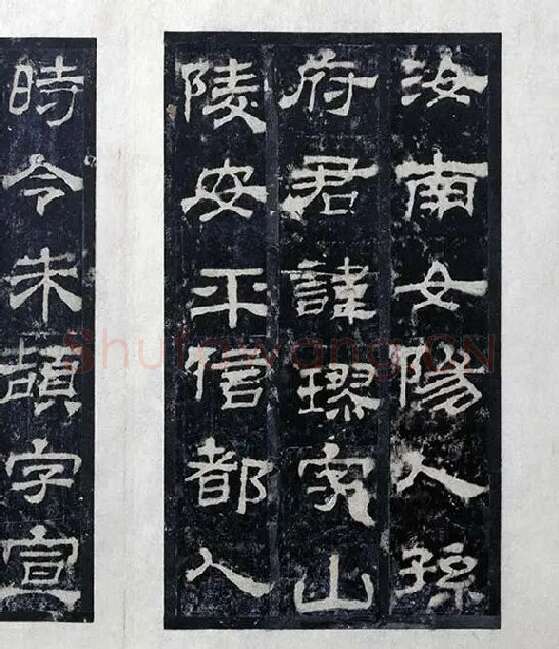 汝南女陽人孫
府君諱璆字山
陵安平信都人
時令朱頡字宣
Shufawang.CN